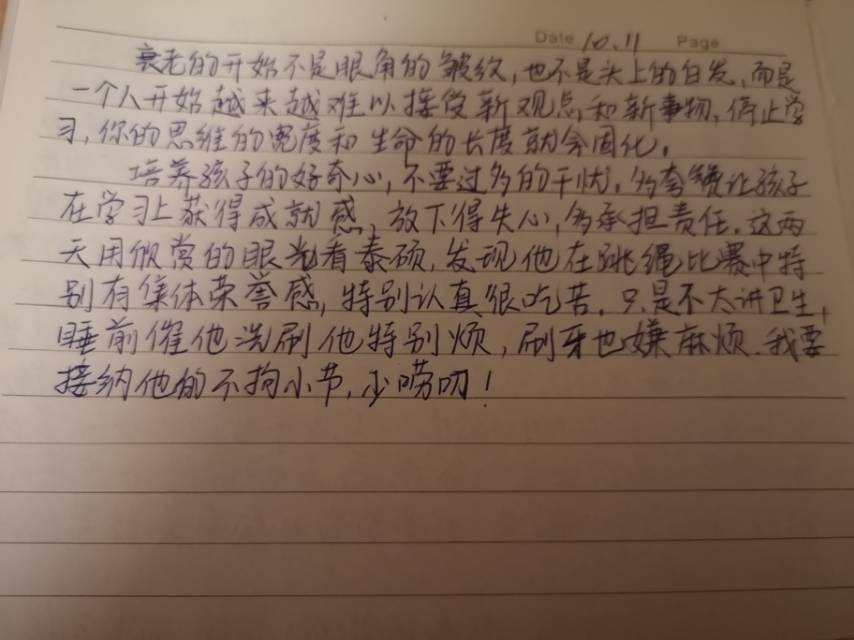 Date 10.11 Page
衰老的开始不是眼角的皱纹,也不是头上的白发,而是
一个人开始越来越难以接受新观点和新事物,停止学
习,你的思维的宽度和生命的长度就会固化。
培养孩子的好奇心,不要过多的干扰。多夸赞让孩子
在学习上获得成就感,放下得失心,多承担责任。这两
天用欣赏的眼光看泰硕,发现他在跳绳比赛中特
别有集体荣誉感,特别认真很吃苦。只是不太讲卫生,
睡前催他洗刷他特别烦,刷牙也嫌麻烦。我要
接纳他的不拘小节,少唠叨!